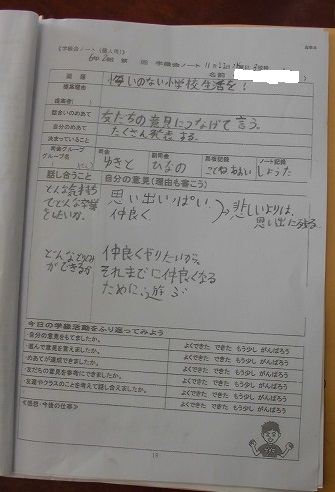 《学級会ノート(個人用)》
第 回 学級会ノート 11月22日
名前
議題 悔いのない小学校生活を!
提案理由
提案者( )
話合いのめあて 友だちの意見につなげて言う。
自分のめあて たくさん発表する。
決まっていること
司会グループ 司会 副司会 黒板記録 ノート記録
グループ名 ゆきと ひなの ことね あおい しょうた
話し合うこと 自分の意見(理由も書こう)
どんな気持ち
思い出いっぱい。
仲良く
悲しいよりは、
思い出に残る
どんなとりくみ
ができるか
仲良くやりたいから、
それまでに仲良くなる
ために遊ぶ
今日の学級活動をふり返ってみよう
・自分の意見をもてましたか。 よくできた できた もう少し がんばろう
・進んで意見を言えましたか。 よくできた できた もう少し がんばろう
・めあてが達成できましたか。 よくできた できた もう少し がんばろう
・友だちの意見を参考にできましたか。 よくできた できた もう少し がんばろう
・友達やクラスのことを考えて話し合えましたか。 よくできた できた もう少し がんばろう
≪感想・今後の仕事≫
19